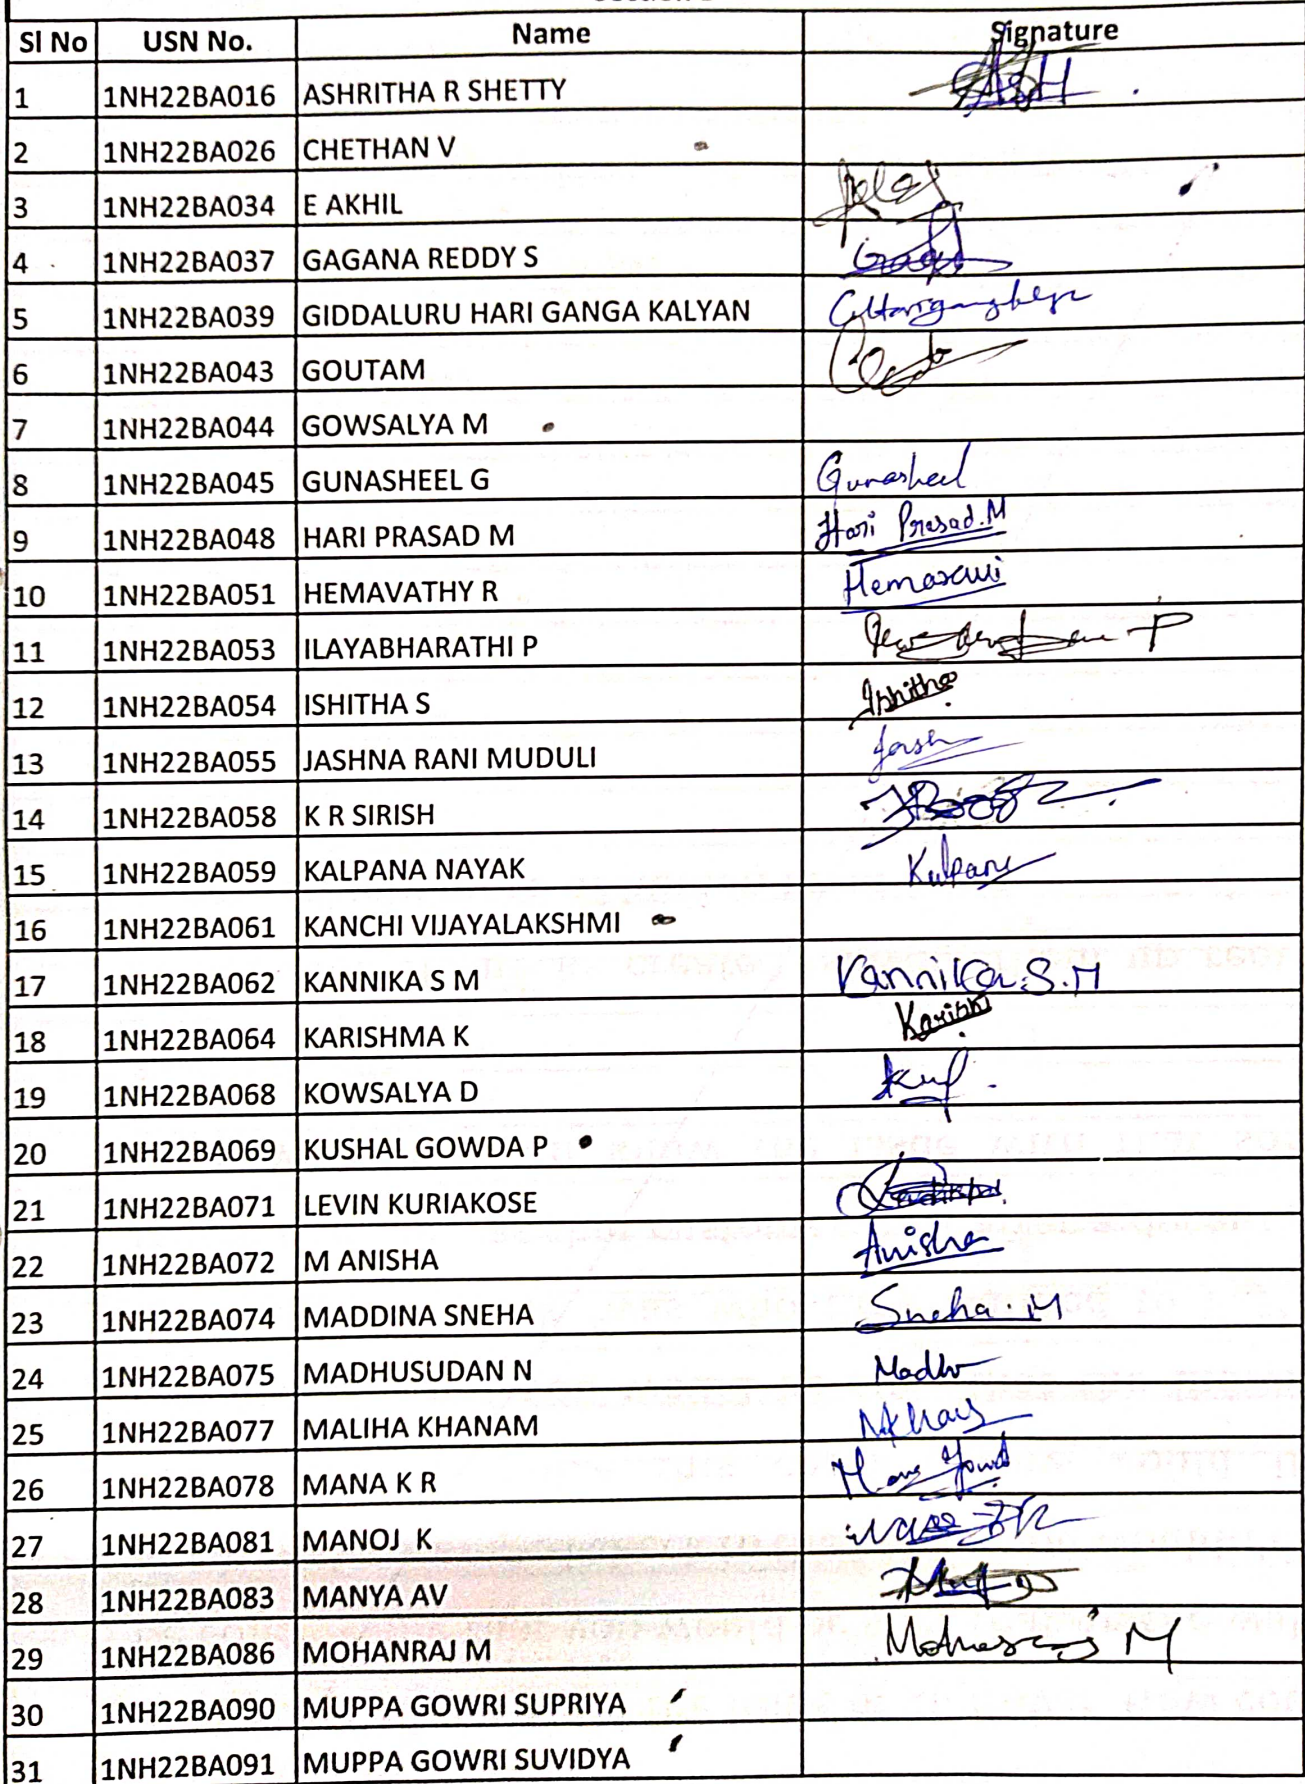 Sl No USN No. Name Signature
1 1NH22BA016 ASHRITHA R SHETTY
2 1NH22BA026 CHETHAN V
3 1NH22BA034 E AKHIL
4 1NH22BA037 GAGANA REDDY S
5 1NH22BA039 GIDDALURU HARI GANGA KALYAN
6 1NH22BA043 GOUTAM
7 1NH22BA044 GOWSALYA M
8 1NH22BA045 GUNASHEEL G Gunasheel
9 1NH22BA048 HARI PRASAD M Hari Prasad.M
10 1NH22BA051 HEMAVATHY R
11 1NH22BA053 ILAYABHARATHI P
12 1NH22BA054 ISHITHA S Ishitha
13 1NH22BA055 JASHNA RANI MUDULI Jash
14 1NH22BA058 K R SIRISH
15 1NH22BA059 KALPANA NAYAK Kalpana
16 1NH22BA061 KANCHI VIJAYALAKSHMI
17 1NH22BA062 KANNIKA S M Kannika.S.M
18 1NH22BA064 KARISHMA K
19 1NH22BA068 KOWSALYA D
20 1NH22BA069 KUSHAL GOWDA P
21 1NH22BA071 LEVIN KURIAKOSE
22 1NH22BA072 M ANISHA Anisha
23 1NH22BA074 MADDINA SNEHA Sneha.M
24 1NH22BA075 MADHUSUDAN N Madhu
25 1NH22BA077 MALIHA KHANAM
26 1NH22BA078 MANA K R
27 1NH22BA081 MANOJ K
28 1NH22BA083 MANYA AV
29 1NH22BA086 MOHANRAJ M Mohanraj M
30 1NH22BA090 MUPPA GOWRI SUPRIYA
31 1NH22BA091 MUPPA GOWRI SUVIDYA